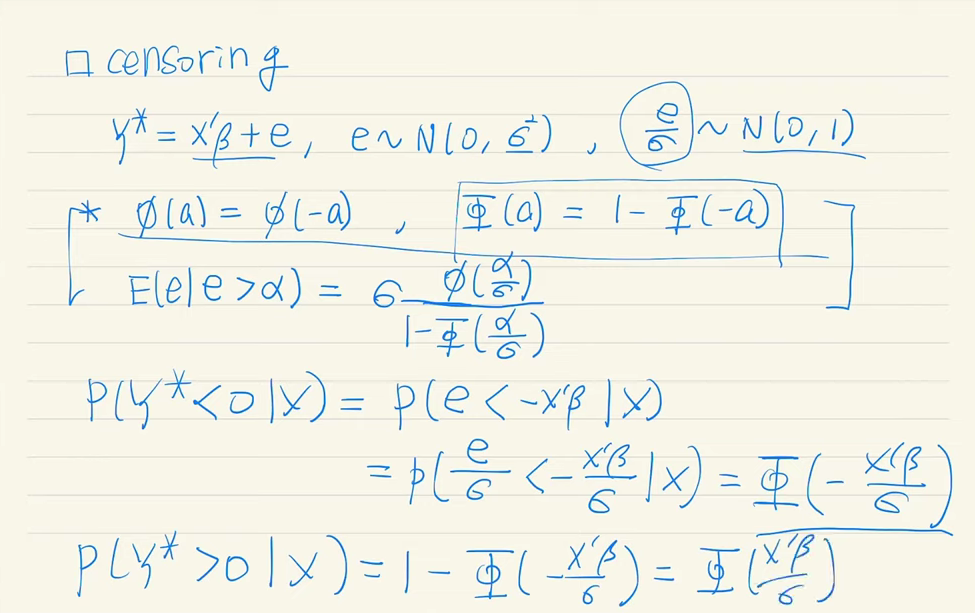 □ censoring
y* = x'β + e, e ~ N(0, σ²), e/σ ~ N(0, 1)
* φ(a) = φ(-a), Φ(a) = 1 - Φ(-a)
E(e|e > α) = σ φ(α/σ) / (1 - Φ(α/σ))
P(y* < 0 | x) = P(e < -x'β | x)
= P(e/σ < -x'β/σ | x) = Φ(-x'β/σ)
P(y* > 0 | x) = 1 - Φ(-x'β/σ) = Φ(x'β/σ)